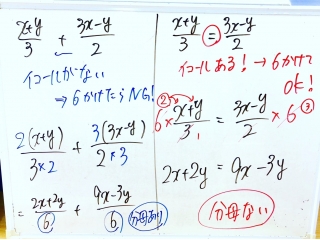 x+y/3 + 3x-y/2
イコールがない
→6かけたらNG!
2(x+y)/3×2 + 3(3x-y)/2×3
= 2x+2y/6 + 9x-3y/6 分母あり
x+y/3 = 3x-y/2
イコールある!→6かけて
OK!
② ③
6× x+y/3 1 = 3x-y/2 ×6
2x+2y = 9x-3y
分母ない